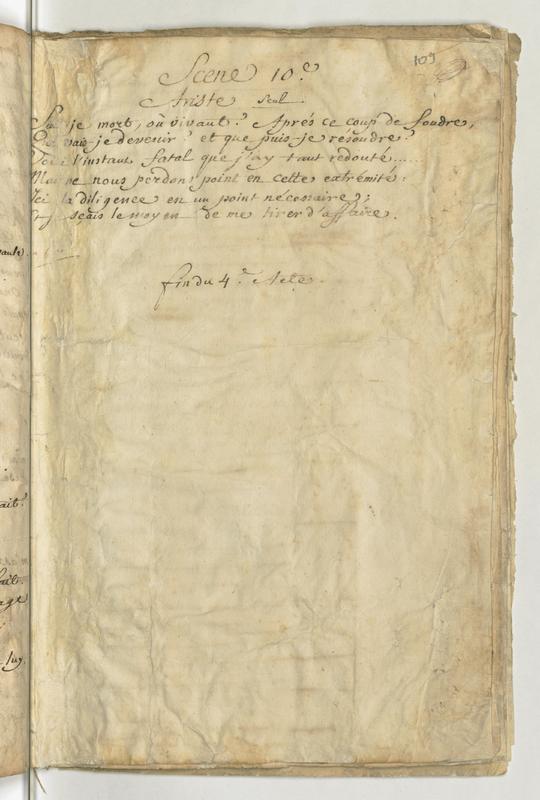 109
Scene 10.e
Ariste seul.
je mort, où vivant? Aprés ce coup de foudre,
vais-je devenir? et que puis-je résoudre?
l'instant fatal que j'ay tant redouté.....
ne nous perdons point en cette extrémité:
Ici la diligence en un point nécessaire;
sçais le moyen de me tirer d'affaire.
fin du 4.e Acte.
vante.
ait?
fait.
age
luy